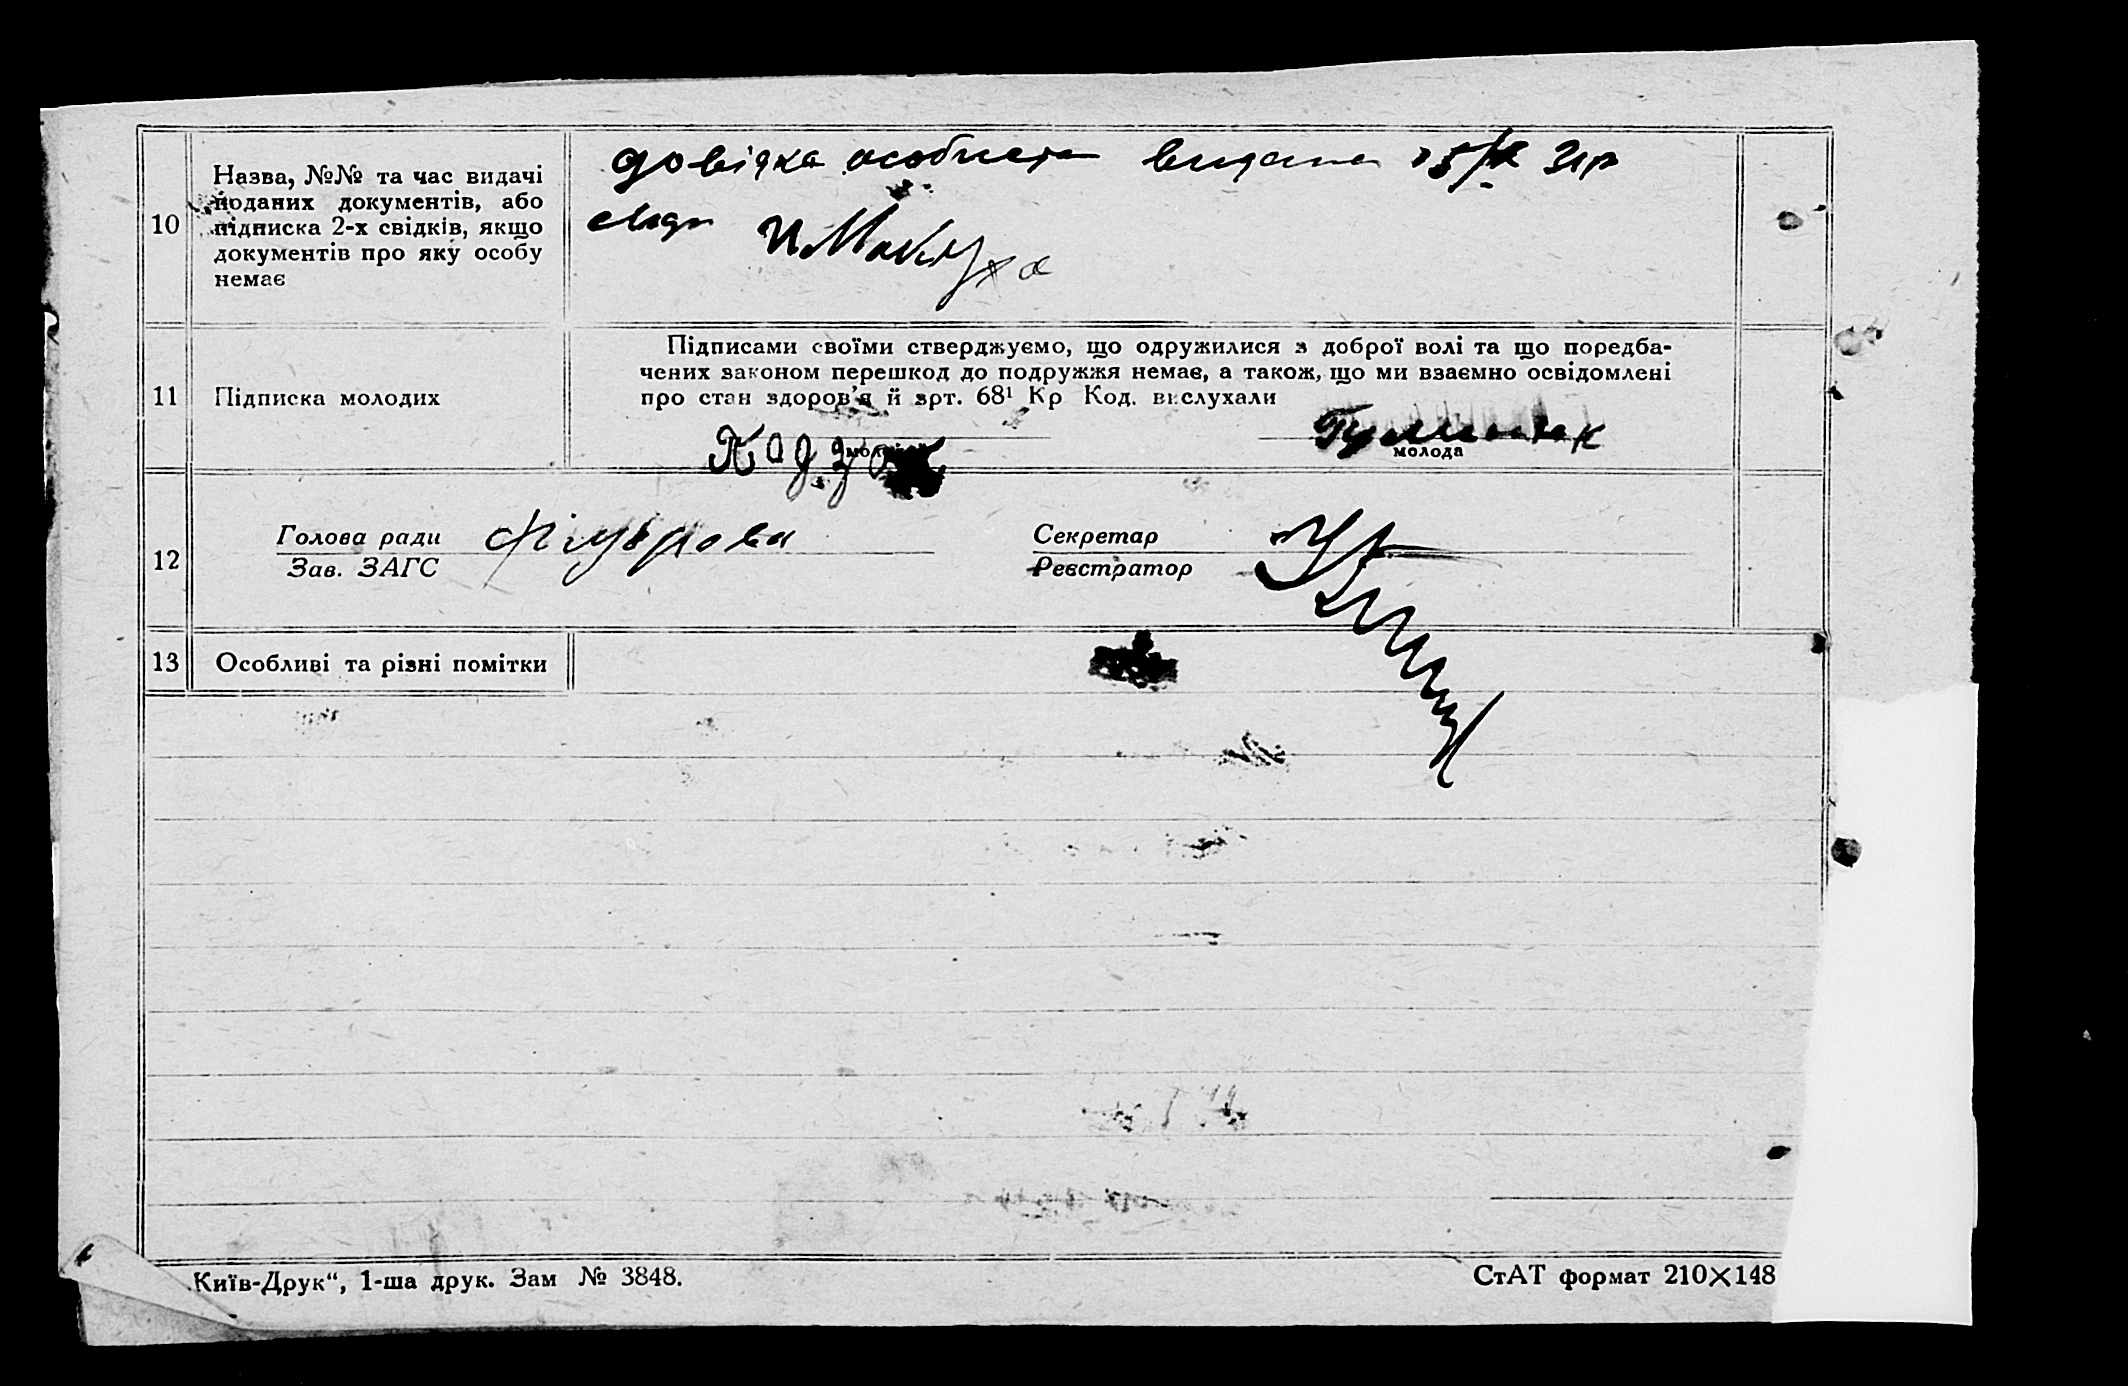 10
Назва, №№ та час видачі
поданих документів, або
підписка 2-х свідків, якщо
документів про яку особу
немає
довідка особиста видана 31р
11
Підписка молодих
Підписами своїми стверджуємо, що одружилися з доброї волі та що поредба-
чених законом перешкод до подружжя немає, а також, що ми взаємно освідомлені
про стан здоров'я й арт. 68¹ Кр Код. вислухали
молодий
молода
12
Голова ради
Зав. ЗАГС
Секретар
Реєстратор
13
Особливі та різні помітки
Київ-Друк“, 1-ша друк. Зам № 3848.
СтАТ формат 210×148